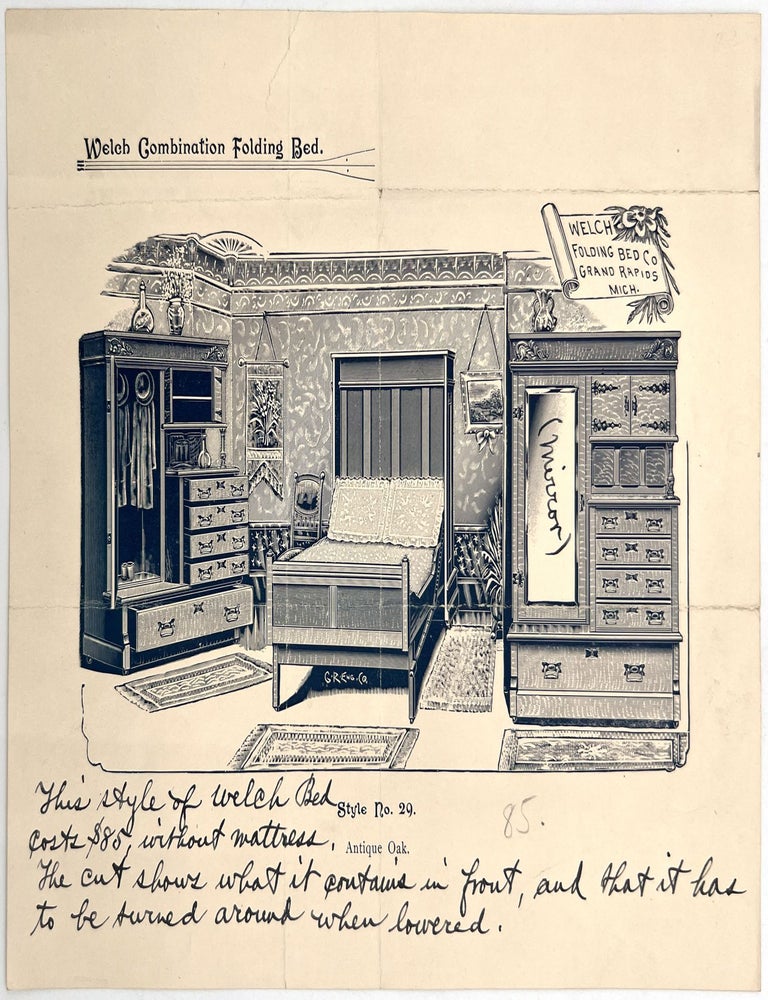 Welch Combination Folding Bed.
WELCH
FOLDING BED CO
GRAND RAPIDS
MICH.
(Mirror)
G.R. ENG. CO.
This style of Welch Bed
Style No. 29.
85.
costs $85, without mattress.
Antique Oak.
The cut shows what it contains in front, and that it has
to be turned around when lowered.